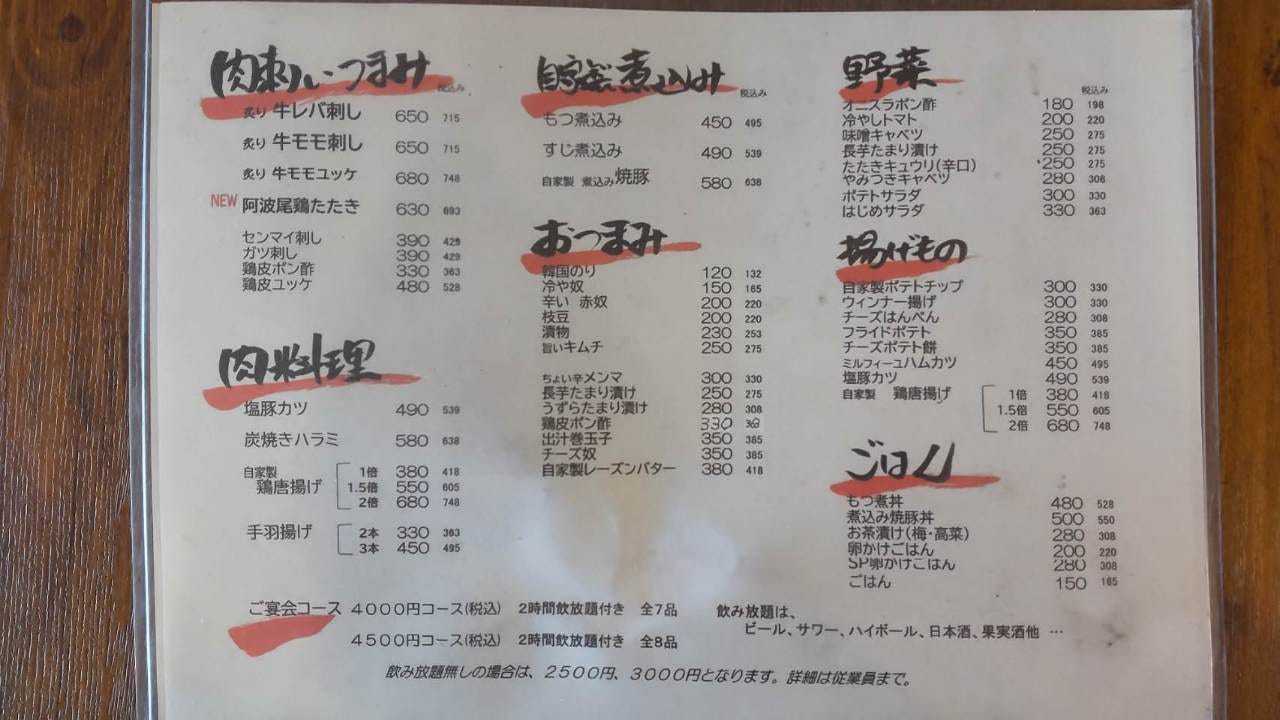 肉刺し、つまみ
税込み
炙り 牛レバ刺し 650 715
炙り 牛モモ刺し 650 715
炙り 牛モモユッケ 680 748
NEW 阿波尾鶏たたき 630 693
センマイ刺し 390 429
ガツ刺し 390 429
鶏皮ポン酢 330 363
鶏皮ユッケ 480 528
肉料理
塩豚カツ 490 539
炭焼きハラミ 580 638
自家製 鶏唐揚げ
1倍 380 418
1.5倍 550 605
2倍 680 748
手羽揚げ
2本 330 363
3本 450 495
自家製煮込み
税込み
もつ煮込み 450 495
すじ煮込み 490 539
自家製 煮込み焼豚 580 638
おつまみ
韓国のり 120 132
冷や奴 150 165
辛い 赤奴 200 220
枝豆 200 220
漬物 230 253
旨いキムチ 250 275
ちょい辛メンマ 300 330
長芋たまり漬け 250 275
うずらたまり漬け 280 308
鶏皮ポン酢 330 363
出汁巻玉子 350 385
チーズ奴 350 385
自家製レーズンバター 380 418
野菜
税込み
オニスラポン酢 180 198
冷やしトマト 200 220
味噌キャベツ 250 275
長芋たまり漬け 250 275
たたきキュウリ(辛口) 250 275
やみつきキャベツ 280 308
ポテトサラダ 300 330
はじめサラダ 330 363
揚げもの
自家製ポテトチップ 300 330
ウィンナー揚げ 300 330
チーズはんぺん 280 308
フライドポテト 350 385
チーズポテト餅 350 385
ミルフィーユハムカツ 450 495
塩豚カツ 490 539
自家製 鶏唐揚げ
1倍 380 418
1.5倍 550 605
2倍 680 748
ごはん
もつ煮丼 480 528
煮込み焼豚丼 500 550
お茶漬け(梅・高菜) 280 308
卵かけごはん 200 220
SP卵かけごはん 280 308
ごはん 150 165
ご宴会コース 4000円コース(税込) 2時間飲放題付き 全7品
4500円コース(税込) 2時間飲放題付き 全8品
飲み放題は、
ビール、サワー、ハイボール、日本酒、果実酒他 …
飲み放題無しの場合は、2500円、3000円となります。詳細は従業員まで。